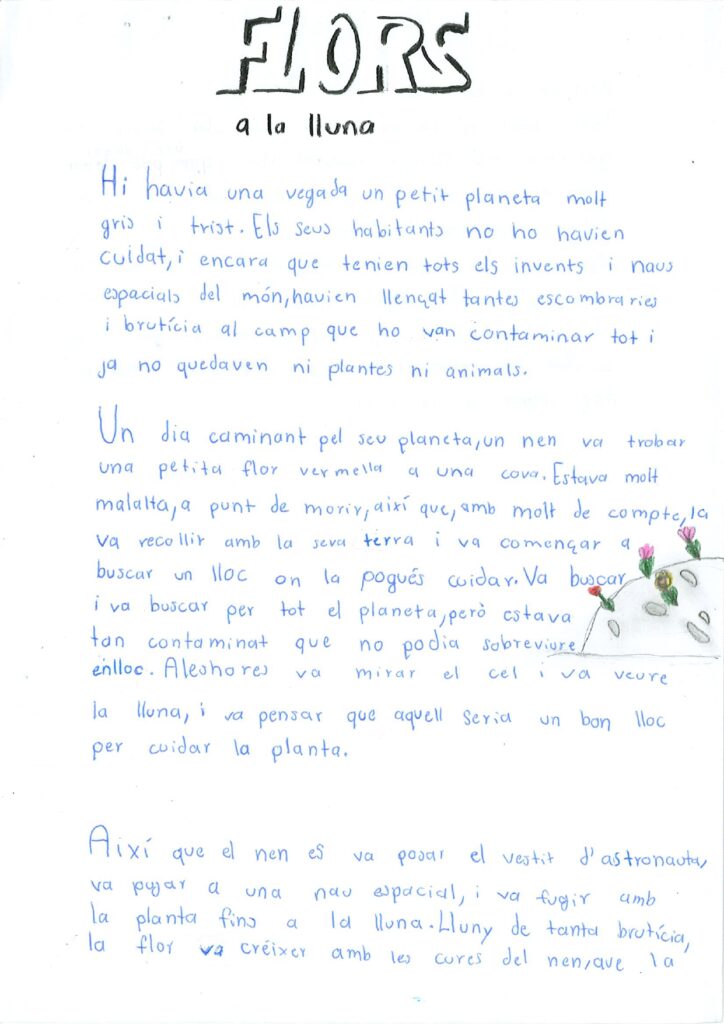 FLORS
a la lluna
Hi havia una vegada un petit planeta molt
gris i trist. Els seus habitants no ho havien
cuidat, i encara que tenien tots els invents i naus
espacials del món, havien llençat tantes escombraries
i brutícia al camp que ho van contaminar tot i
ja no quedaven ni plantes ni animals.
Un dia caminant pel seu planeta, un nen va trobar
una petita flor vermella a una cova. Estava molt
malalta, a punt de morir, així que, amb molt de compte, la
va recollir amb la seva terra i va començar a
buscar un lloc on la pogués cuidar. Va buscar
i va buscar per tot el planeta, però estava
tan contaminat que no podia sobreviure
enlloc. Aleshores va mirar el cel i va veure
la lluna, i va pensar que aquell seria un bon lloc
per cuidar la planta.
Així que el nen es va posar el vestit d'astronauta,
va pujar a una nau espacial, i va fugir amb
la planta fins a la lluna. Lluny de tanta brutícia,
la flor va créixer amb les cures del nen, que la